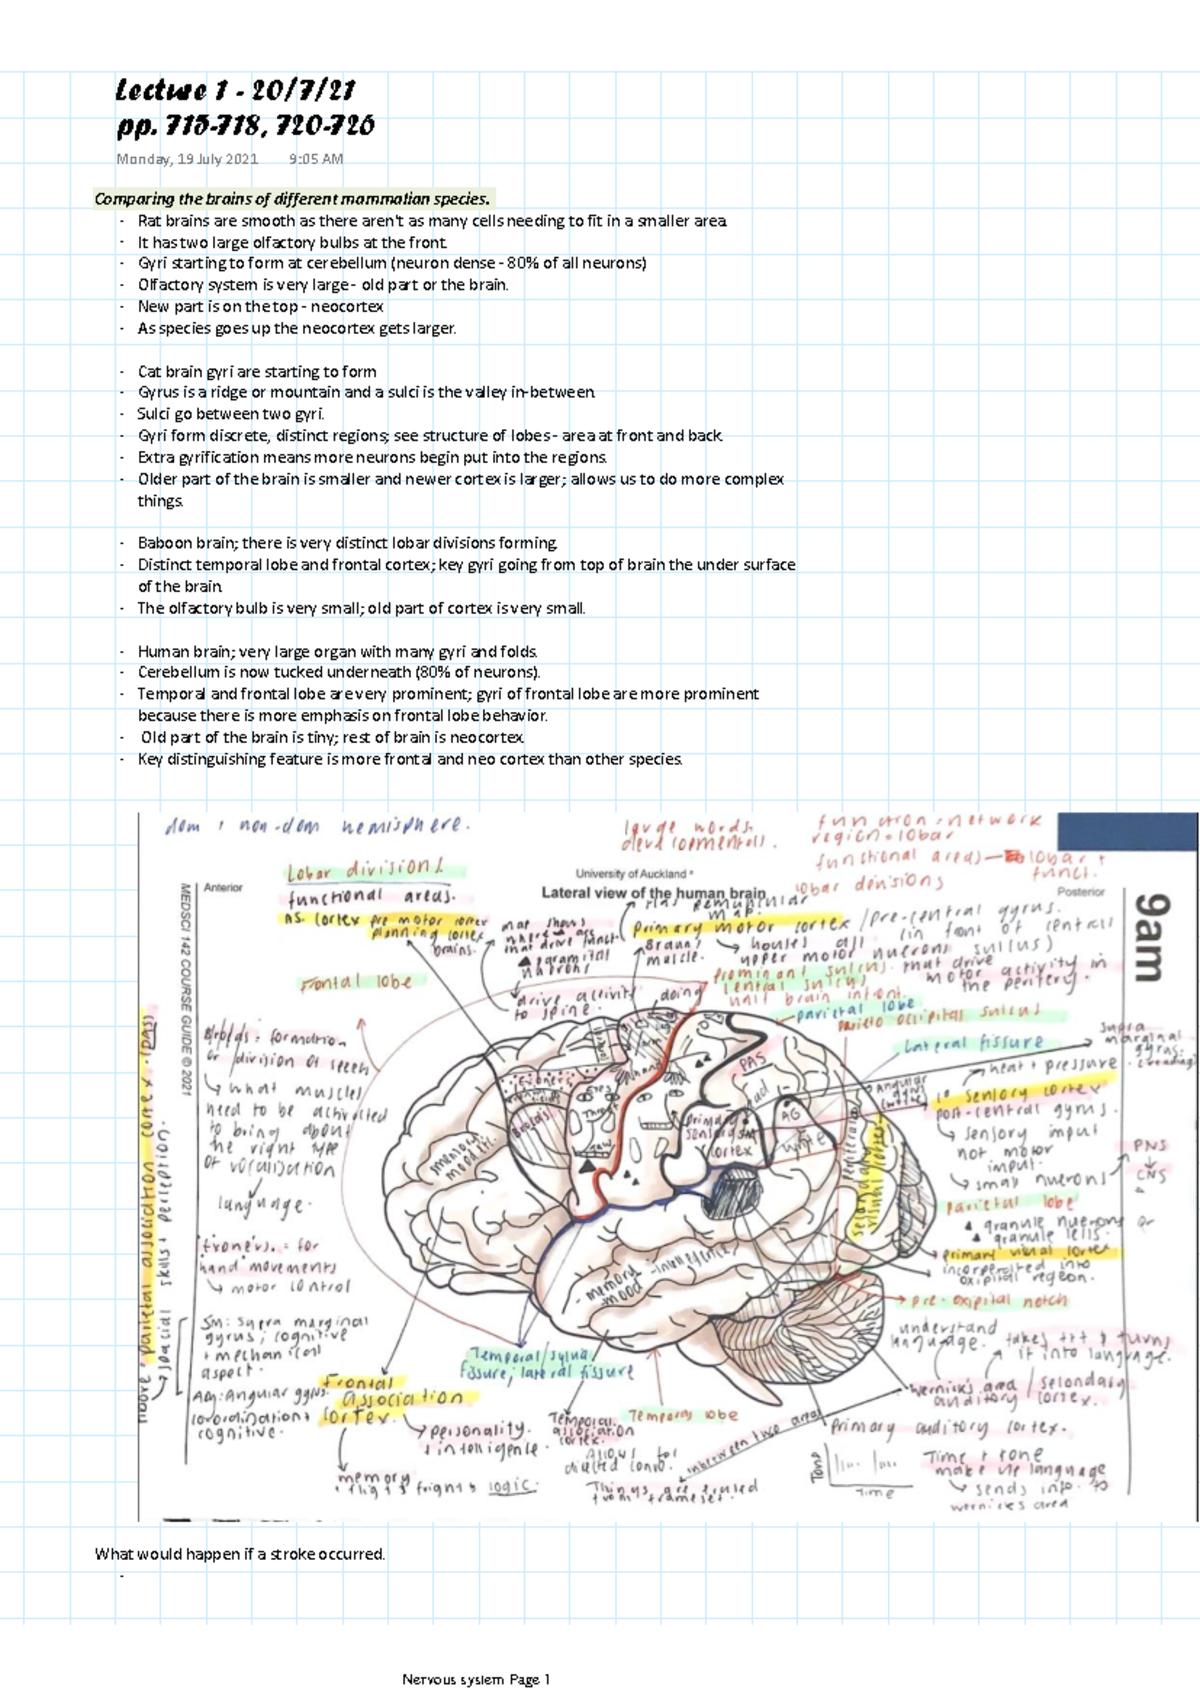 Lecture 1 - 20/7/21
pp. 715-718, 720-726
Monday, 19 July 2021 9:05 AM
Comparing the brains of different mammalian species.
- Rat brains are smooth as there aren't as many cells needing to fit in a smaller area.
- It has two large olfactory bulbs at the front.
- Gyri starting to form at cerebellum (neuron dense - 80% of all neurons)
- Olfactory system is very large - old part or the brain.
- New part is on the top - neocortex
- As species goes up the neocortex gets larger.
- Cat brain gyri are starting to form
- Gyrus is a ridge or mountain and a sulci is the valley in-between.
- Sulci go between two gyri.
- Gyri form discrete, distinct regions; see structure of lobes - area at front and back.
- Extra gyrification means more neurons begin put into the regions.
- Older part of the brain is smaller and newer cortex is larger; allows us to do more complex
things.
- Baboon brain; there is very distinct lobar divisions forming.
- Distinct temporal lobe and frontal cortex; key gyri going from top of brain the under surface
of the brain.
- The olfactory bulb is very small; old part of cortex is very small.
- Human brain; very large organ with many gyri and folds.
- Cerebellum is now tucked underneath (80% of neurons).
- Temporal and frontal lobe are very prominent; gyri of frontal lobe are more prominent
because there is more emphasis on frontal lobe behavior.
- Old part of the brain is tiny; rest of brain is neocortex.
- Key distinguishing feature is more frontal and neo cortex than other species.
dom + non-dom hemisphere.
large words
function = network
region = lobar
functional areas
lobar divisions
Lobar divisions
functional areas.
University of Auckland
Anterior
Lateral view of the human brain
Posterior
MEDSCI 142 COURSE GUIDE © 2021
9am
As. cortex pre motor cortex
planning cortex
brains.
map shows
where
that drive funct.
neurons
drive activity
to spine.
doing
primary motor cortex / pre-central gyrus.
(in front of central
sulcus)
houses all
upper motor nuerons
that drive
motor activity in
the periphery.
muscle.
prominent sulcus.
central sulcus
Frontal lobe
parietal lobe
parieto occipital sulcus
Lateral fissure
supra
marginal
gyrus.
heat + pressure
1° sensory cortex
post-central gyrus.
sensory input
not motor
input.
small nuerons
PNS
CNS
parietal lobe
granule nuerons or
granule cells.
primary visual cortex
incorporated into
oxipital region.
pre-oxipital notch
Broca's = formation
or division of speech
what muscles
need to be activated
to bring about
the right type
of vocalisation
language.
Exner's = for
hand movements
motor control
SM: supra marginal
gyrus; cognitive
+ mechanical
aspect.
AG: Angular gyrus
coordination +
cognitive.
parietal association cortex (PAS)
spacial skills + perception.
above
Frontal
association
cortex.
personality.
+ intelligence.
memory
flight + fright + logic.
Temporal/sylvian
fissure, lateral fissure
Temporal
association
cortex.
Allows for
Temporal lobe
inbetween two areas
understand
language.
takes txt + turns
it into language.
Wernick's area / secondary
auditory cortex.
Primary auditory cortex.
Tone
Time
Time + tone
make up language
sends info to
wernickes area
memory
mood
intelligence
PAS
AG
primary
sensory
cortex
secondary
visual cortex
What would happen if a stroke occurred.
-
Nervous system Page 1